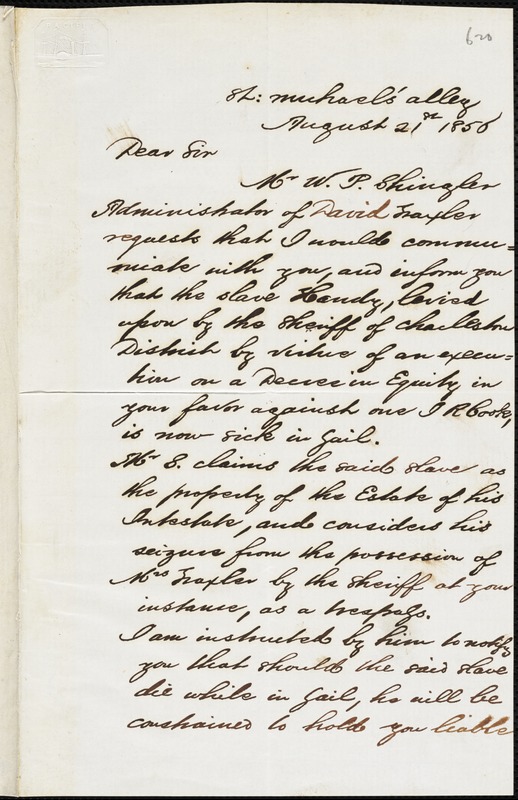 620
St: Michael's Alley
August 21st 1856
Dear Sir
Mr W. P. Shingler
Administrator of David Traxler
requests that I would commu=
nicate with you, and inform you
that the slave Handy, levied
upon by the Sheriff of Charleston
District by virtue of an execu-
tion on a Decree in Equity in
your favor against one J R Cook,
is now sick in Gail.
Mr S. claims the said slave as
the property of the Estate of his
Intestate, and considers his
seizure from the possession of
Mrs Traxler by the Sheriff at your
instance, as a trespass.
I am instructed by him to notify
you that should the said slave
die while in Gail, he will be
constrained to hold you liable